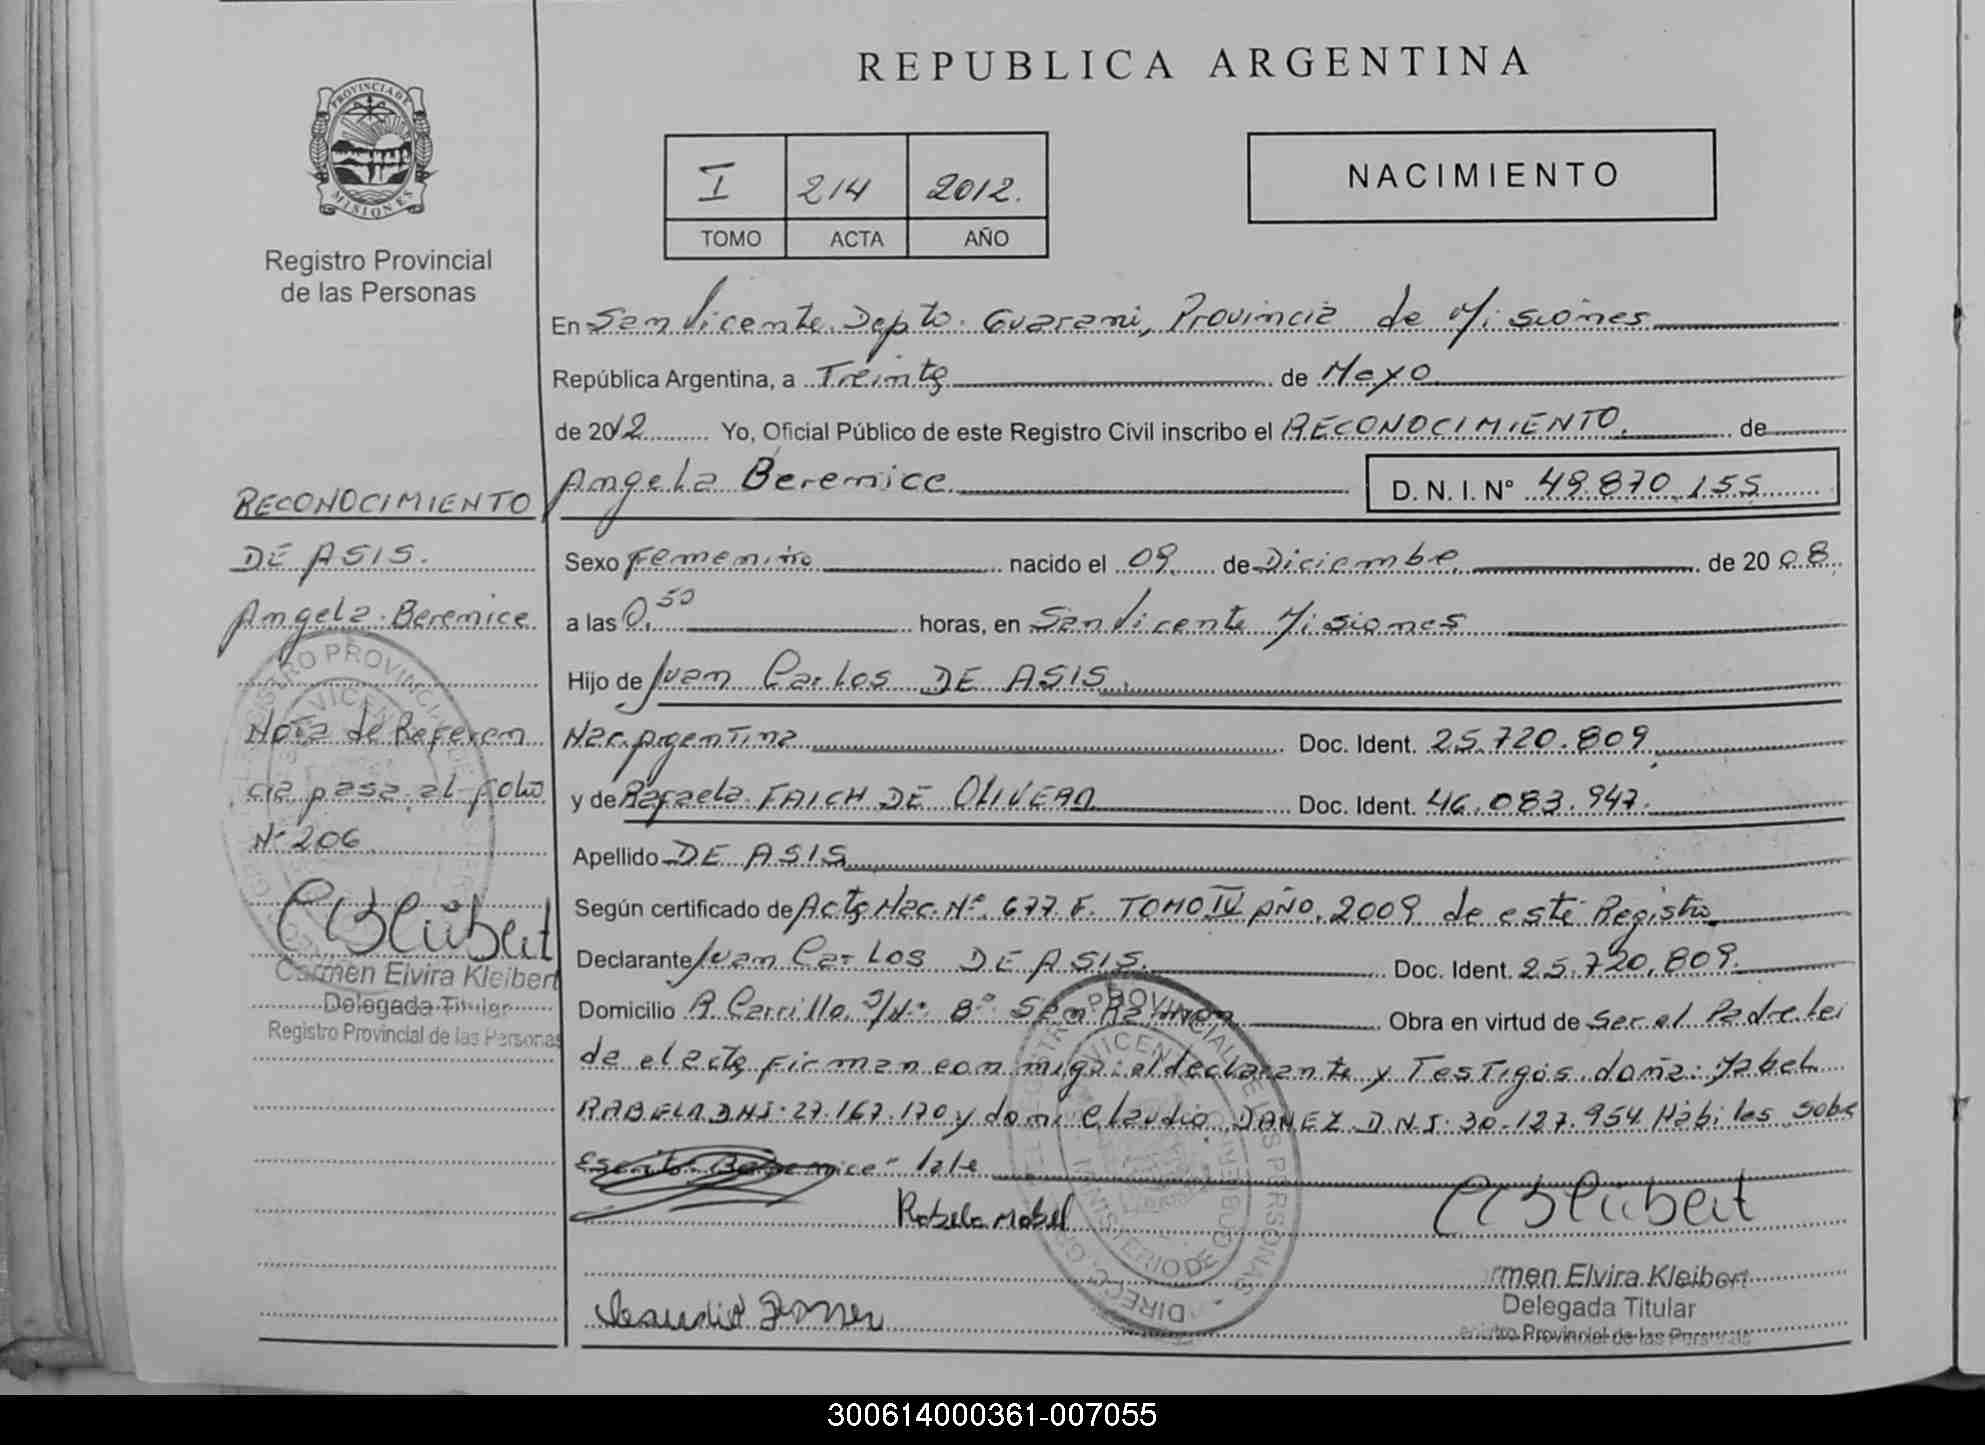 REPUBLICA ARGENTINA
PROVINCIA DE
MISIONES
Registro Provincial
de las Personas
I 214 2012.
TOMO ACTA AÑO
NACIMIENTO
En San Vicente Depto. Guarani, Provincia de Misiones
República Argentina, a Treinta de Mayo
de 2012 Yo, Oficial Público de este Registro Civil inscribo el RECONOCIMIENTO. de
Angela Berenice D. N. I. Nº 49.870.155
Sexo Femenino nacido el 09 de Diciembre de 2008
a las 0.50 horas, en San Vicente Misiones
Hijo de Juan Carlos DE ASIS.
Nac. Argentina Doc. Ident. 25.720.809
y de Rafaela FAICH DE OLIVERA Doc. Ident. 46.083.947.
Apellido DE ASIS
Según certificado de Acta Nac. Nº 677. F. TOMO IV AÑO. 2009 de este Registro
Declarante Juan Carlos DE ASIS. Doc. Ident. 25.720.809.
Domicilio R Carrillo S/Nº Bº San Ramon Obra en virtud de Ser el Padre lei
da el acta firman conmigo: el declarante y Testigos doña: Mabel
RABELA DNI: 27.167.170 y don: Claudio DANEZ D.N.I: 30.127.954 Hábiles sobre
Escrito Berenice - Vale
Rabela Mabel
Carmen Elvira Kleibert
Delegada Titular
Registro Provincial de las Personas
RECONOCIMIENTO
DE ASIS.
Angela Berenice
Nota de Referen
cia pasa al folio
Nº 206
Carmen Elvira Kleibert
Delegada Titular
Registro Provincial de las Personas
300614000361-007055